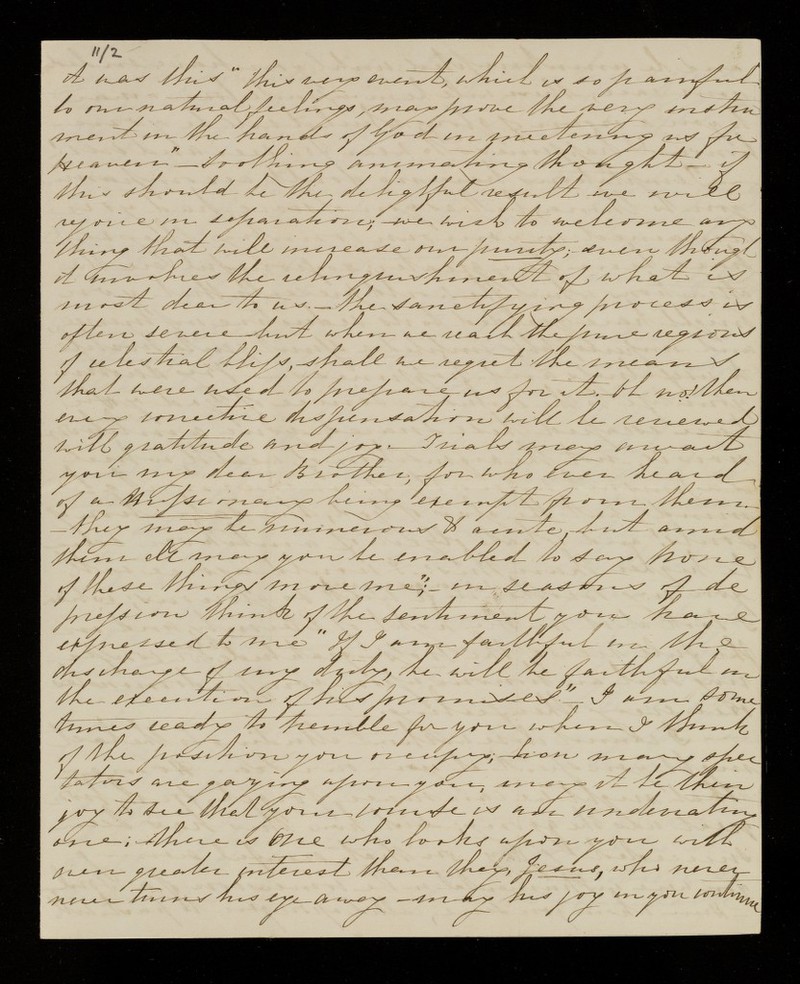 11/2
it was this "this very event, which is so painful
to our natural feelings, may prove the very instru
ment in the hands of God in meetening us for
Heaven" – Soothing animating thought – if
this should be the delightful result we will
rejoice in separation; – we wish to welcome any
thing that will increase our purity; even though
it involves the relinquishment of what is
most dear to us. – the sanctifying process is
often severe but when we reach the pure regions
of celestial bliss, shall we regret the means
that were used to prepare us for it. Oh no! then
every corrective dispensation will be reviewed
with gratitude and joy. Trials may await
you my dear Brother, for who ever heard
of a Missionary being exempt from them
– they may be numerous & acute, but amid
them all may you be enabled to say "None
of these things move me"; – in seasons of de
pression think of the sentiment you have
expressed to me "If I am faithful in the
discharge of my duty, he will be faithful in
the execution of his promises" – I am some
times ready to tremble for you when I think
of the position you occupy; how many spec
tators are gazing upon you, may it be their
joy to see that your course is an undeviating
one; there is One who looks upon you with
even greater interest than they, Jesus, who never
never turns his eye away – may his joy in you continue